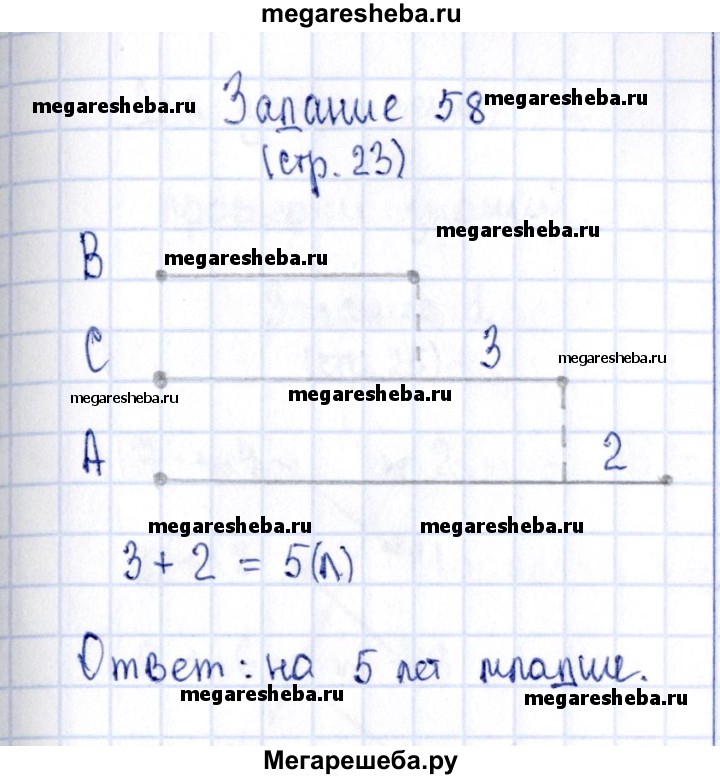 megaresheba.ru
megaresheba.ru Задание 58 megaresheba.ru
(стр. 23)
megaresheba.ru
В megaresheba.ru
С 3 megaresheba.ru
megaresheba.ru megaresheba.ru
А 2
megaresheba.ru megaresheba.ru
3 + 2 = 5 (л)
Ответ: на 5 лет младше.
megaresheba.ru megaresheba.ru
Мегарешеба.ру